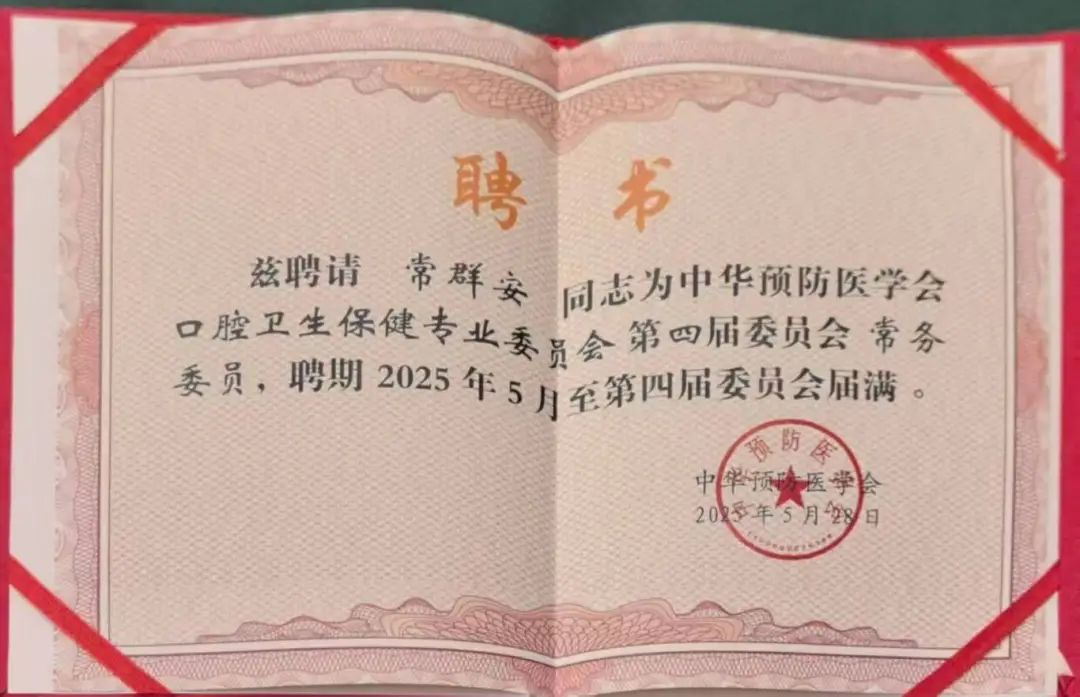 聘书
兹聘请 常群安 同志为中华预防医学会
口腔卫生保健专业委员会 第四届委员会 常务
委员，聘期 2025 年 5 月至第四届委员会届满。
中华预防医学会
2025 年 5 月 28 日